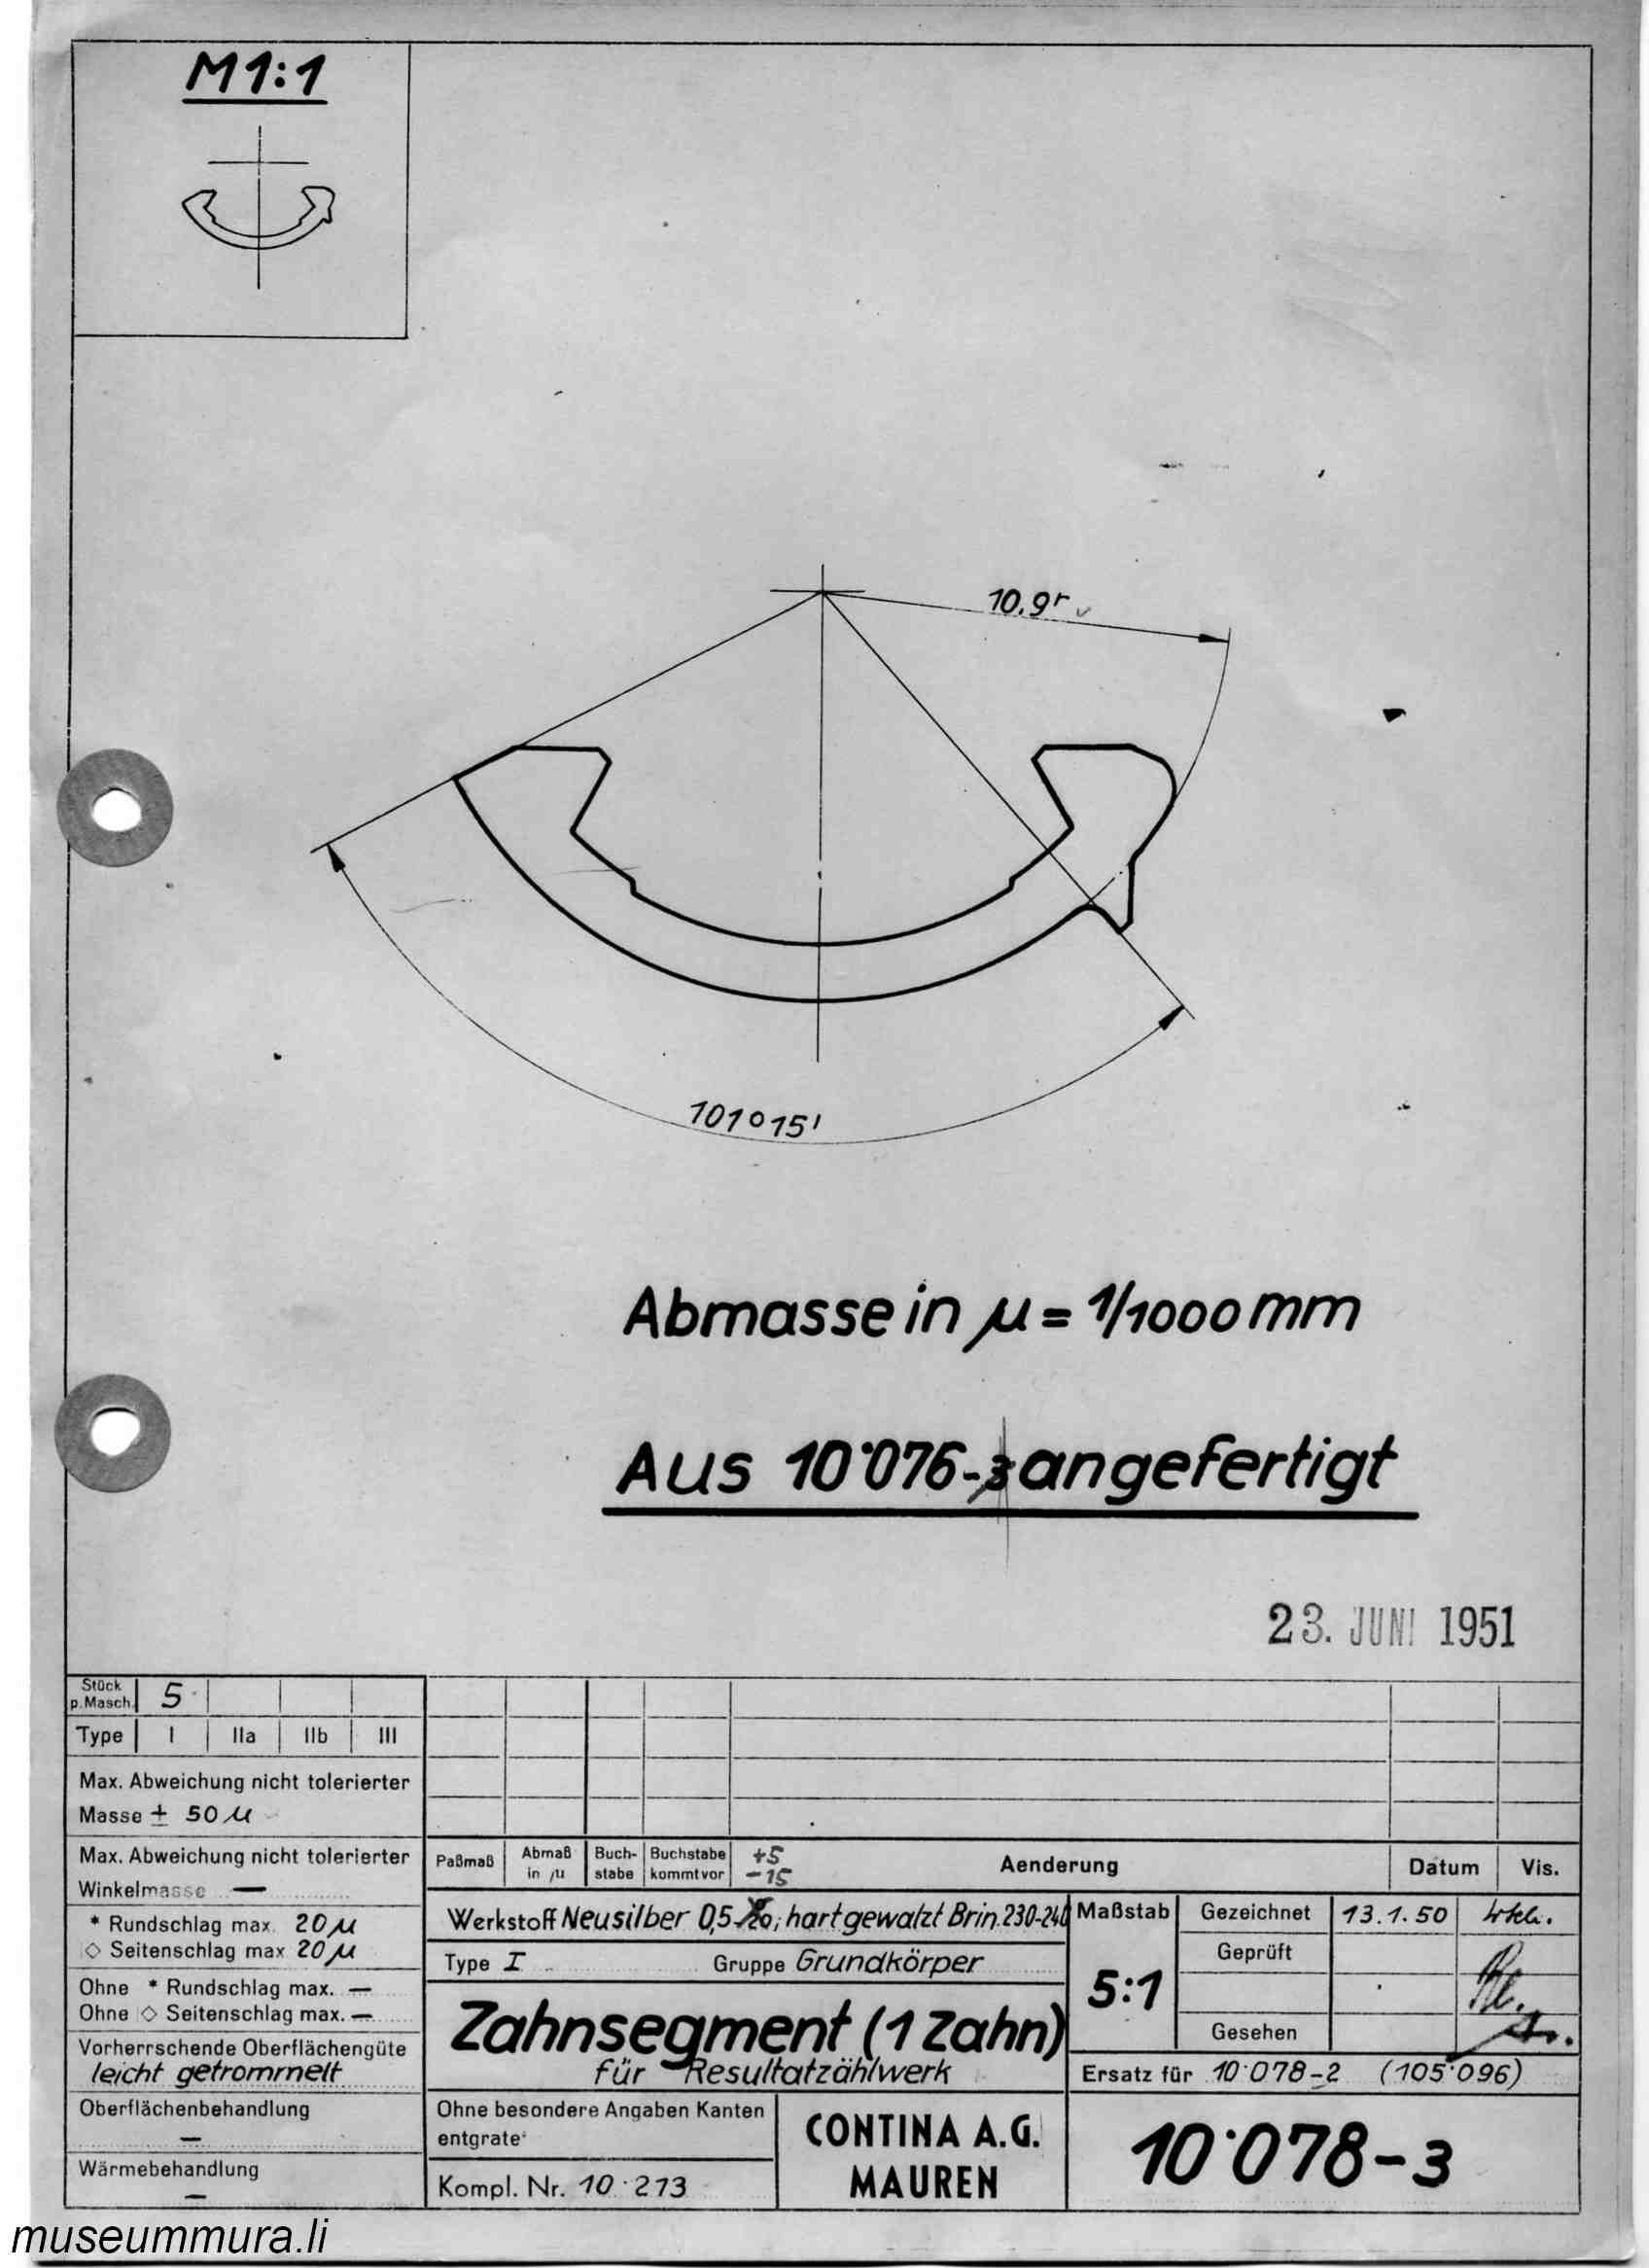 M 1:1
10.9r
101° 15'
Abmasse in µ = 1/1000 mm
Aus 10'076- angefertigt
23. JUNI 1951
Stück
p. Masch. 5
Type I IIa IIb III
Max. Abweichung nicht tolerierter
Masse ± 50 µ
Max. Abweichung nicht tolerierter
Winkelmasse —
* Rundschlag max. 20 µ
◇ Seitenschlag max 20 µ
Ohne * Rundschlag max. —
Ohne ◇ Seitenschlag max. —
Vorherrschende Oberflächengüte
leicht getrommelt
Oberflächenbehandlung
—
Wärmebehandlung
—
Paßmaß
Abmaß
in µ
Buch-
stabe
Buchstabe
kommt vor
+5
-15
Aenderung
Datum
Vis.
Werkstoff Neusilber 0,5 ; hartgewalzt Brin. 230-240
Type I Gruppe Grundkörper
Zahnsegment (1 Zahn)
für Resultatzählwerk
Ohne besondere Angaben Kanten
entgrate
Kompl. Nr. 10'273
CONTINA A.G.
MAUREN
Maßstab
5:1
Gezeichnet 13.1.50
Geprüft
Gesehen
Ersatz für 10'078-2 (105'096)
10'078-3
museummura.li